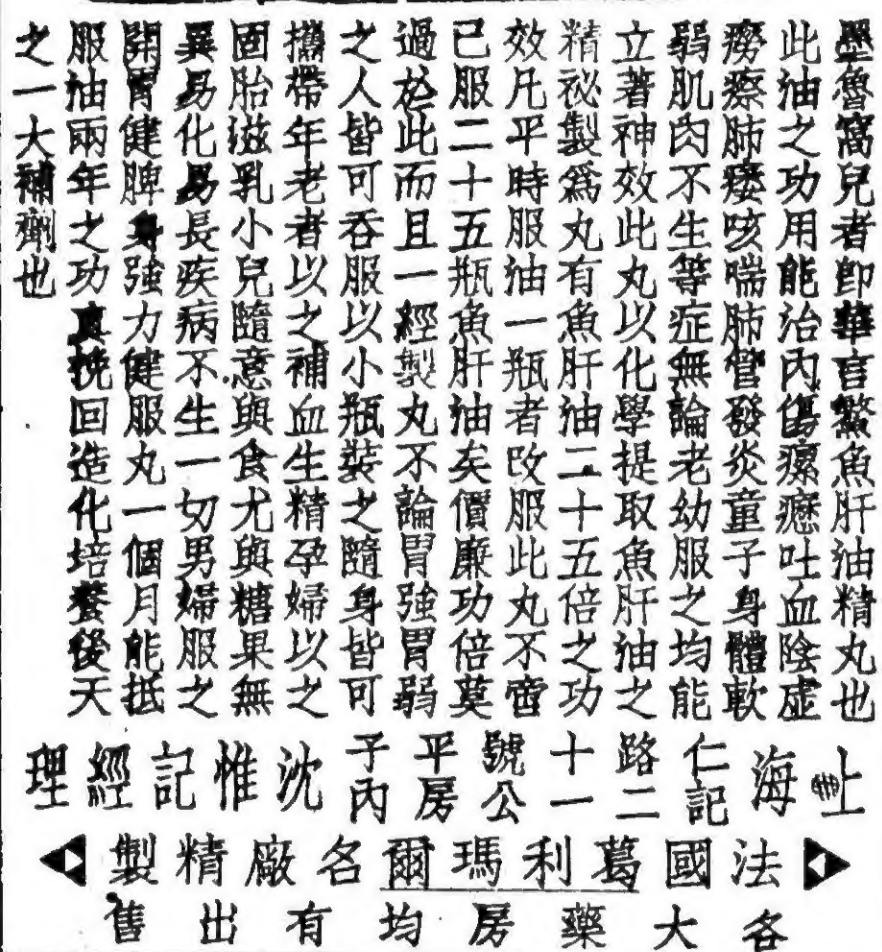 墨魯窩兒者卽華言鰵魚肝油精丸也
此油之功用能治內傷瘰癧吐血陰虛
癆瘵肺痿咳喘肺管發炎童子身體軟
弱肌肉不生等症無論老幼服之均能
立著神效此丸以化學提取魚肝油之
精祕製爲丸有魚肝油二十五倍之功
效凡平時服油一瓶者改服此丸不啻
已服二十五瓶魚肝油矣價廉功倍莫
過於此而且一經製丸不論胃強胃弱
之人皆可吞服以小瓶裝之隨身皆可
攜帶年老者以之補血生精孕婦以之
固胎滋乳小兒隨意與食尤與糖果無
異易化易長疾病不生一切男婦服之
開胃健脾身強力健服丸一個月能抵
服油兩年之功眞挽回造化培養後天
之一大補劑也
上海仁記路二十一號公平房子內沈惟記經理
法國葛利瑪爾名廠精製
各大藥房均有出售